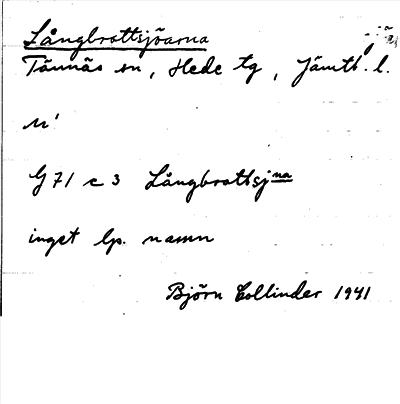 Långbrottsjöarna
Tännäs sn, Hede tg, Jämtl. l.
G 71 c 3 Långbrottsjna
inget lp. namn
Björn Collinder 1941